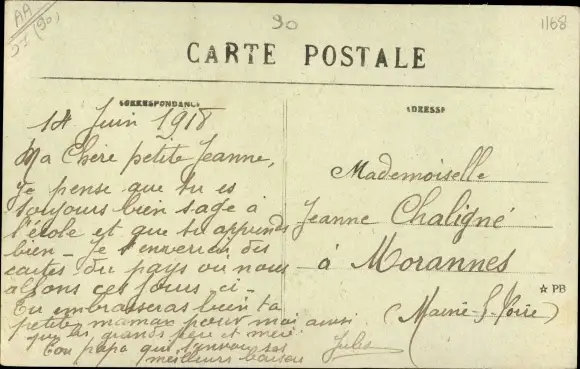 AA
90
1168
CARTE POSTALE
CORRESPONDANCE
ADRESSE
14 Juin 1918
Ma Chère petite Jeanne,
Je pense que tu es
toujours bien sage à
l'école et que tu apprends
bien - Je t'enverrai des
cartes du pays où nous
allons ces jours ci -
Tu embrasseras bien ta
petite maman pour moi ainsi
que tes grands père et mère
Ton papa qui t'envoie ses
meilleurs baisers
Jules
Mademoiselle
Jeanne Chaligné
à Morannes
(Maine-&-Loire)
☆ PB